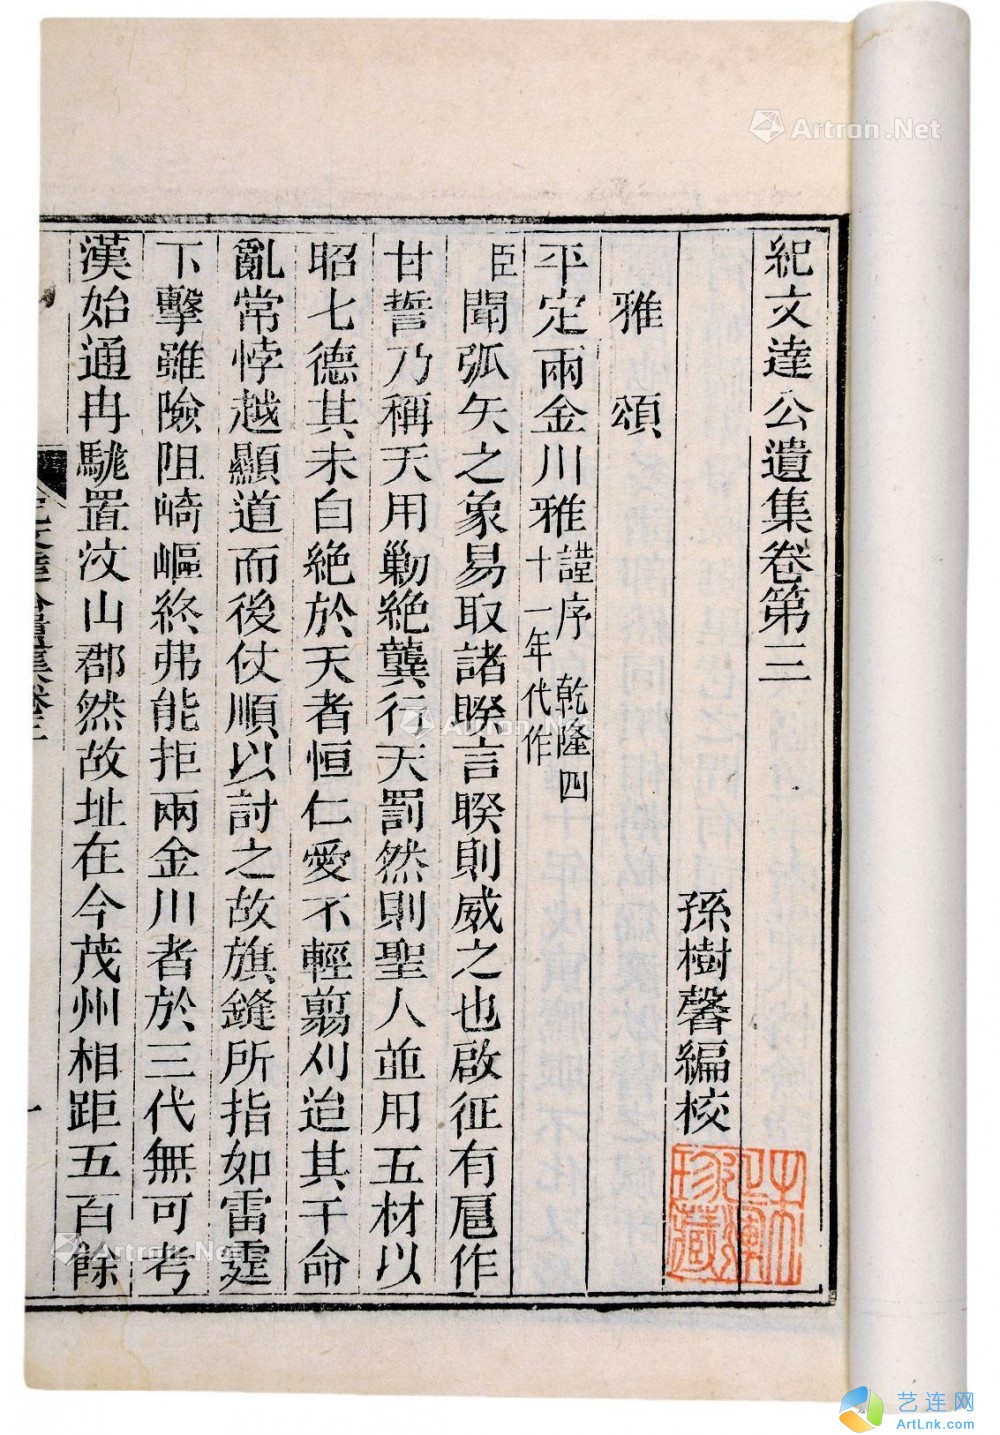 紀文達公遺集卷第三
孫樹馨編校
雅頌
平定兩金川雅謹序 乾隆四十一年代作
臣聞弧矢之象易取諸睽言睽則威之也啟征有扈作
甘誓乃稱天用勦絕龔行天罰然則聖人並用五材以
昭七德其未自絕於天者恒仁愛不輕翦刈迨其干命
亂常悖越顯道而後仗順以討之故旗鋒所指如雷霆
下擊雖險阻崎嶇終弗能拒兩金川者於三代無可考
漢始通冉駹置汶山郡然故址在今茂州相距五百餘
紀文達公遺集卷三
一
珍藏
Artron.Net
Artron.Net
Artron.Net
艺连网
ArtLnk.com